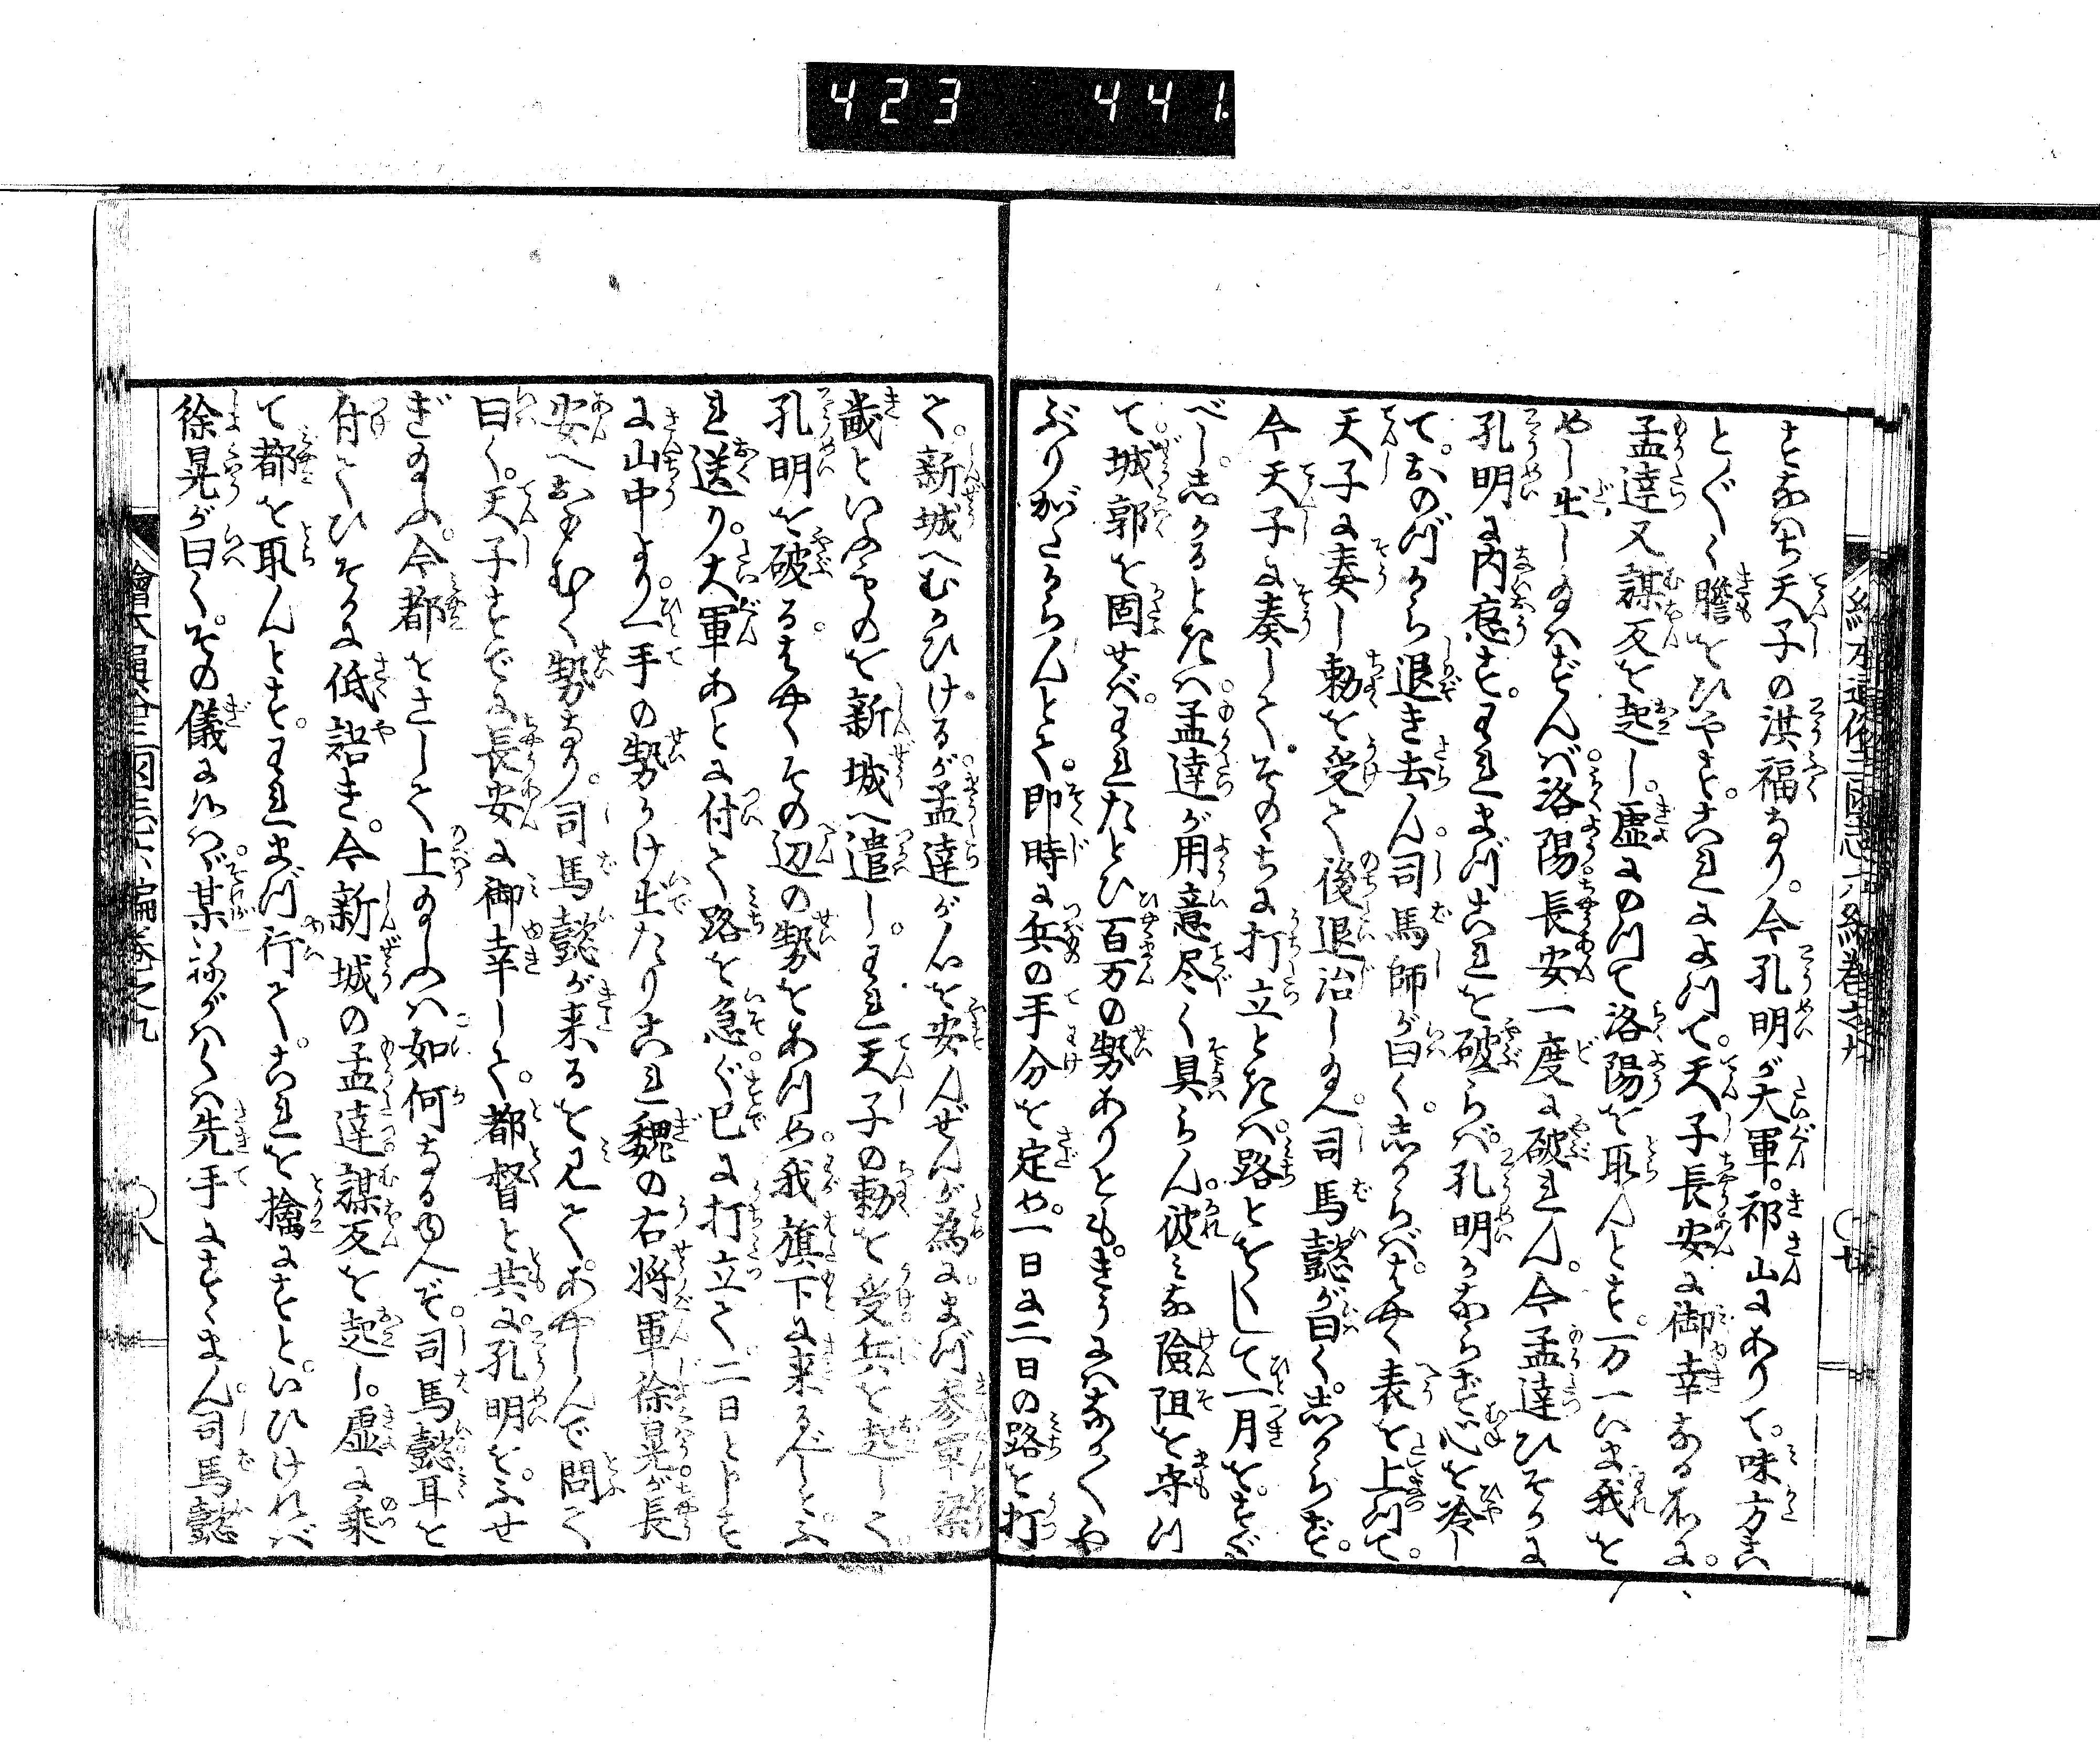 423 441
すなはち天子の洪福なり。今孔明が大軍。祁山にありて。味方こ
とごとく膽をひやす。これによつて。天子長安に御幸なる不に。
孟達又謀反を起し。虚にのつて洛陽を取んとす。万一いま我を
やし出し給はずんば。洛陽長安一度に破れん。今孟達ひそかに
孔明に内應す。われまづこれを破らば。孔明かならず心を冷し
て。おのづから退き去ん。司馬師が曰く。しからばはやく表を上つて。
天子に奏し勅を受て後退治し給へ。司馬懿が曰く。しからず。
今天子に奏して。そのゝちに打立ときは。路とをくして一月をすぐ
べし。しかるときは。孟達が用意尽く具らん。彼みな險阻を守り
て。城郭を固せば。われたとひ百万の勢ありとも。きうにはなかくや
ぶりがたからんとて。即時に兵の手分を定や。一日に二日の路を打
て。新城へむかひけるが。孟達が心を安んぜんが為に。まづ参軍梁
畿といふものを新城へ遣し。われ天子の勅を受。兵を起して。
孔明を破る。はやくその辺の勢をあつめ。我旗下に来るべしとふ
れ送り。大軍あとに付て路を急ぐ。已に打立て。二日と申す
に山中より。一手の勢かけ出たり。これ魏の右将軍徐晃が長
安へおもむく勢なり。司馬懿が来るを見て。あやしんで問て
曰く。天子すでに長安に御幸して。都督と共に。孔明をふせ
ぎ給ふ。今都をさして上り給ふは如何なるゆへぞ。司馬懿耳を
付てひそかに低語き。今新城の孟達謀反を起し。虚に乘
て都を取んとす。われまづ行て。これを擒にすと。いひければ
徐晃が曰く。その儀に候はゞ。某ねがはくは先手にすゝまん。司馬懿